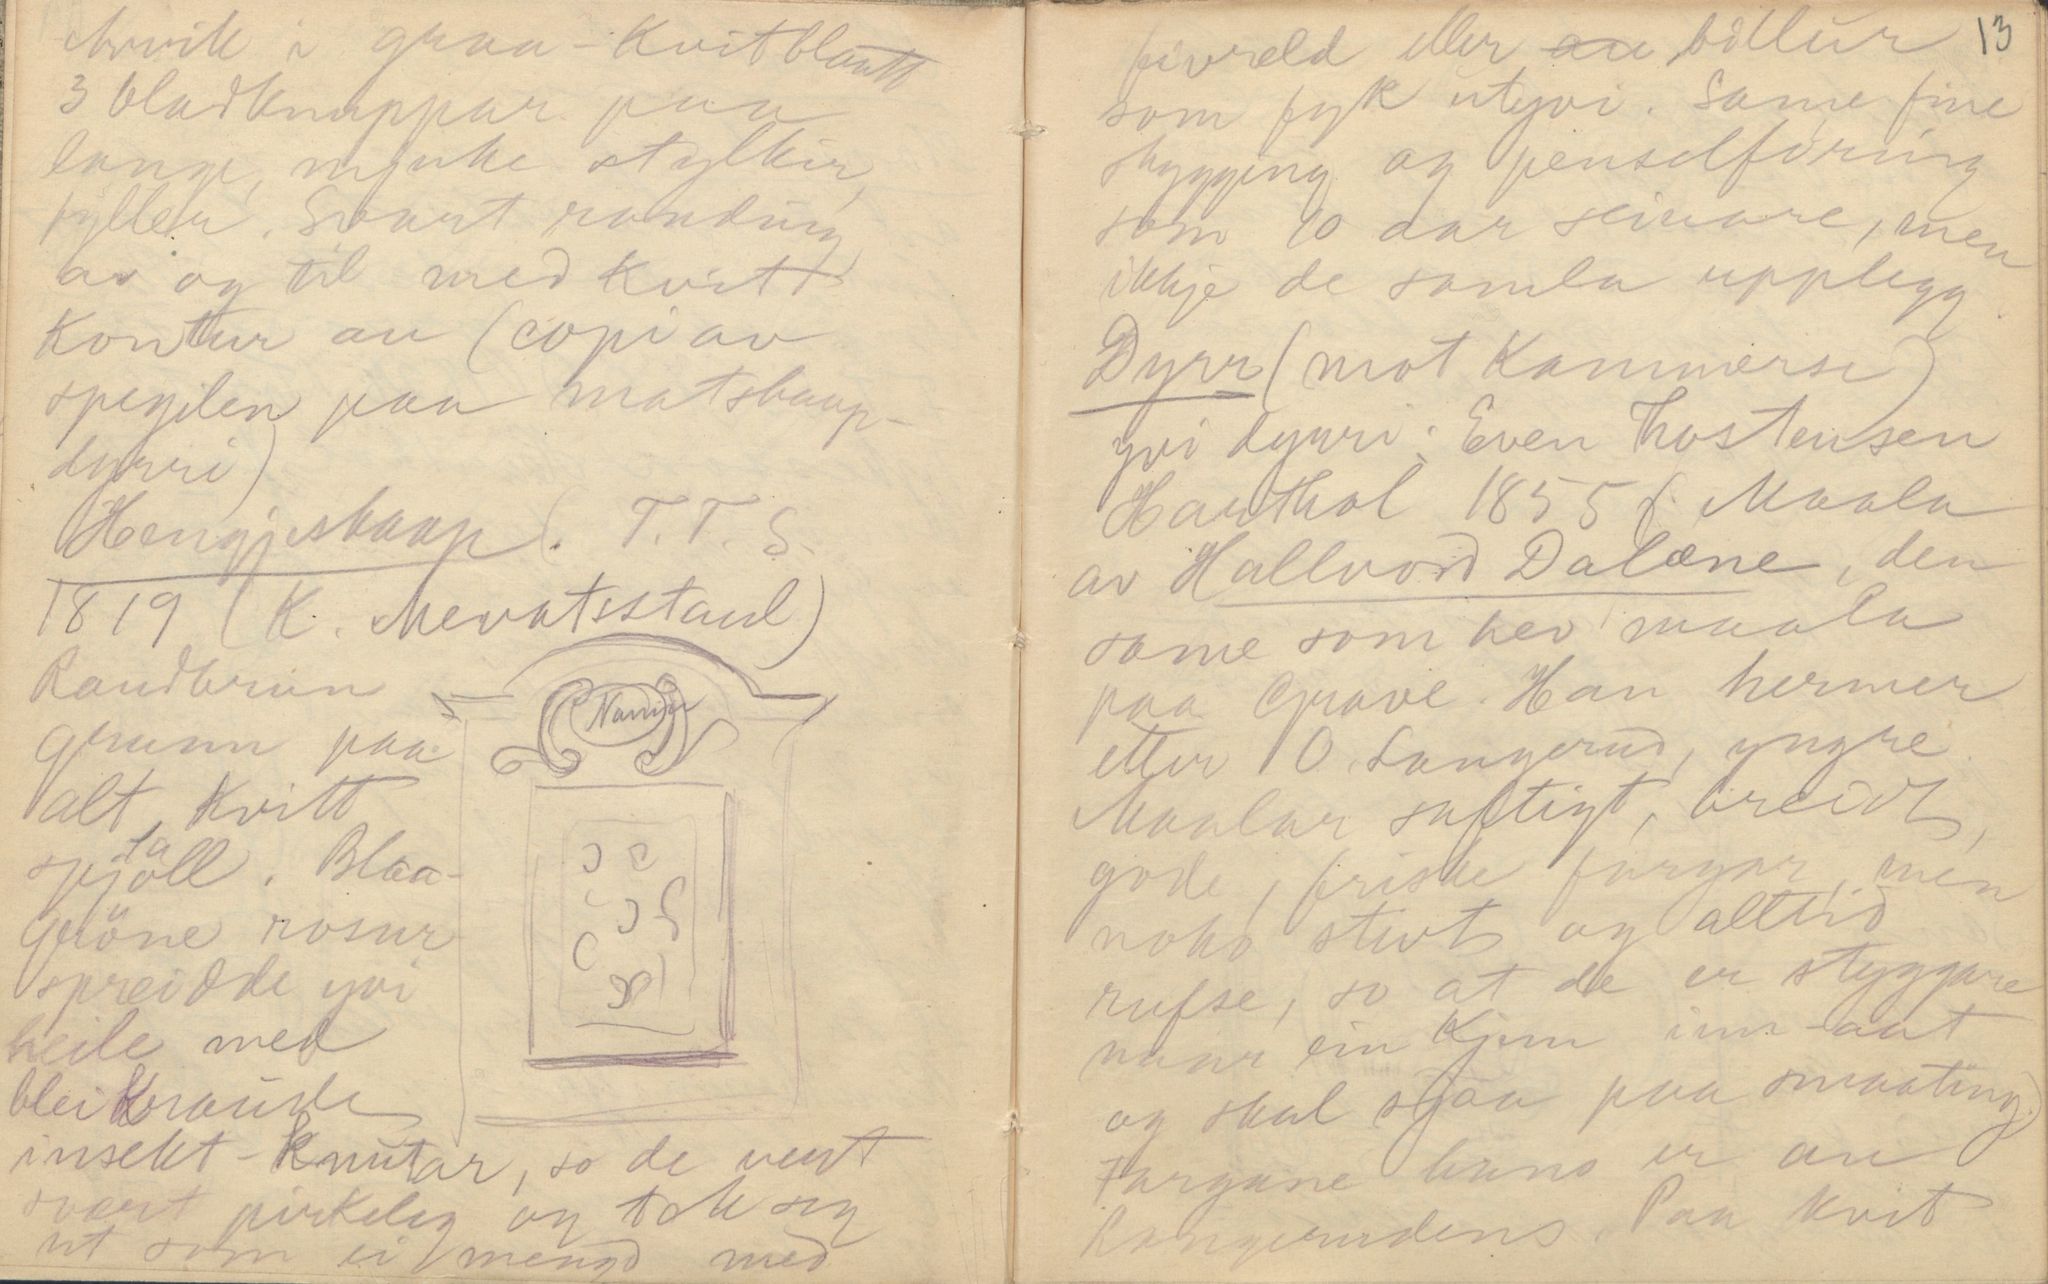 krik i graa-kvitblaatt
3 bladknappar paa
lange, mjuke stylkir,
fyller. Svart randing
av og til med kvit
kontur au (copi av
spegilen paa matskaap-
dyrri)
Hengjeskaap (. T. T. S.
1819 (K. Mevatsstaul)
Raudbrun
grunn paa
alt, kvitt
spjöll. Blaa-
gröne rosur
spreidde yvi
heile med
bleikraude
insekt-knutar, so de vert
svært pirkeleg og tek seg
ut som ei mengd med
Namn
13
fivreld eller billur
som fyk utyvi. Same fine
skygging og penselföring
som 10 aar seinare, men
ikkje de samla upplegg.
Dyrr (mot kammerse)
yvi dyrri: Even Thostensen
Haathol 1855 (. Maala
av Hallvord Dalæne, den
same som hev maala
paa Grave. Han hermer
etter O. Langerud, yngre.
Maalar saftigt, breidt,
gode, friske fargar, men
noko stivt og alltid
rufse, so at de er styggare
naar ein kjem inn-aat
og skal sjaa paa smaating.
Fargane hans er au
Langerudens. Paa kvit